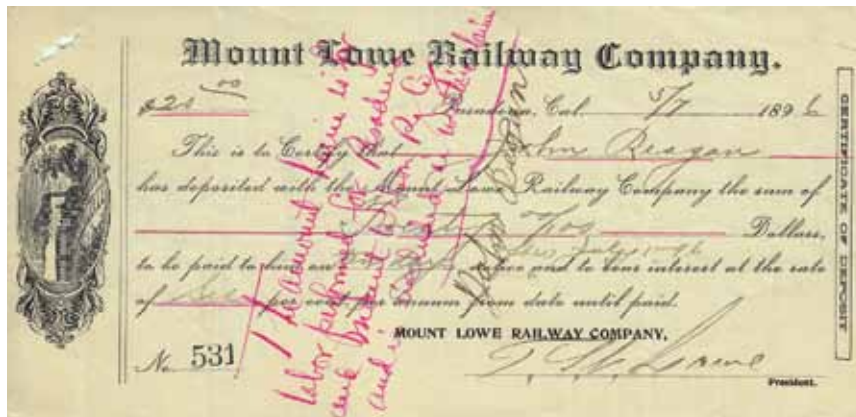 Mount Lowe Railway Company.
$20.00 Pasadena, Cal. 5/7 1896
This is to Certify that John Reagan
has deposited with the Mount Lowe Railway Company the sum of
Twenty no/100 Dollars,
to be paid to him on days notice and to bear interest at the rate
of Six per cent per annum from date until paid.
MOUNT LOWE RAILWAY COMPANY,
No. 531 T. S. C. Lowe
President.
CERTIFICATE OF DEPOSIT
The amount herein is for
labor performed for Pasadena
and Mount Lowe Ry Co
and is
John Reagan